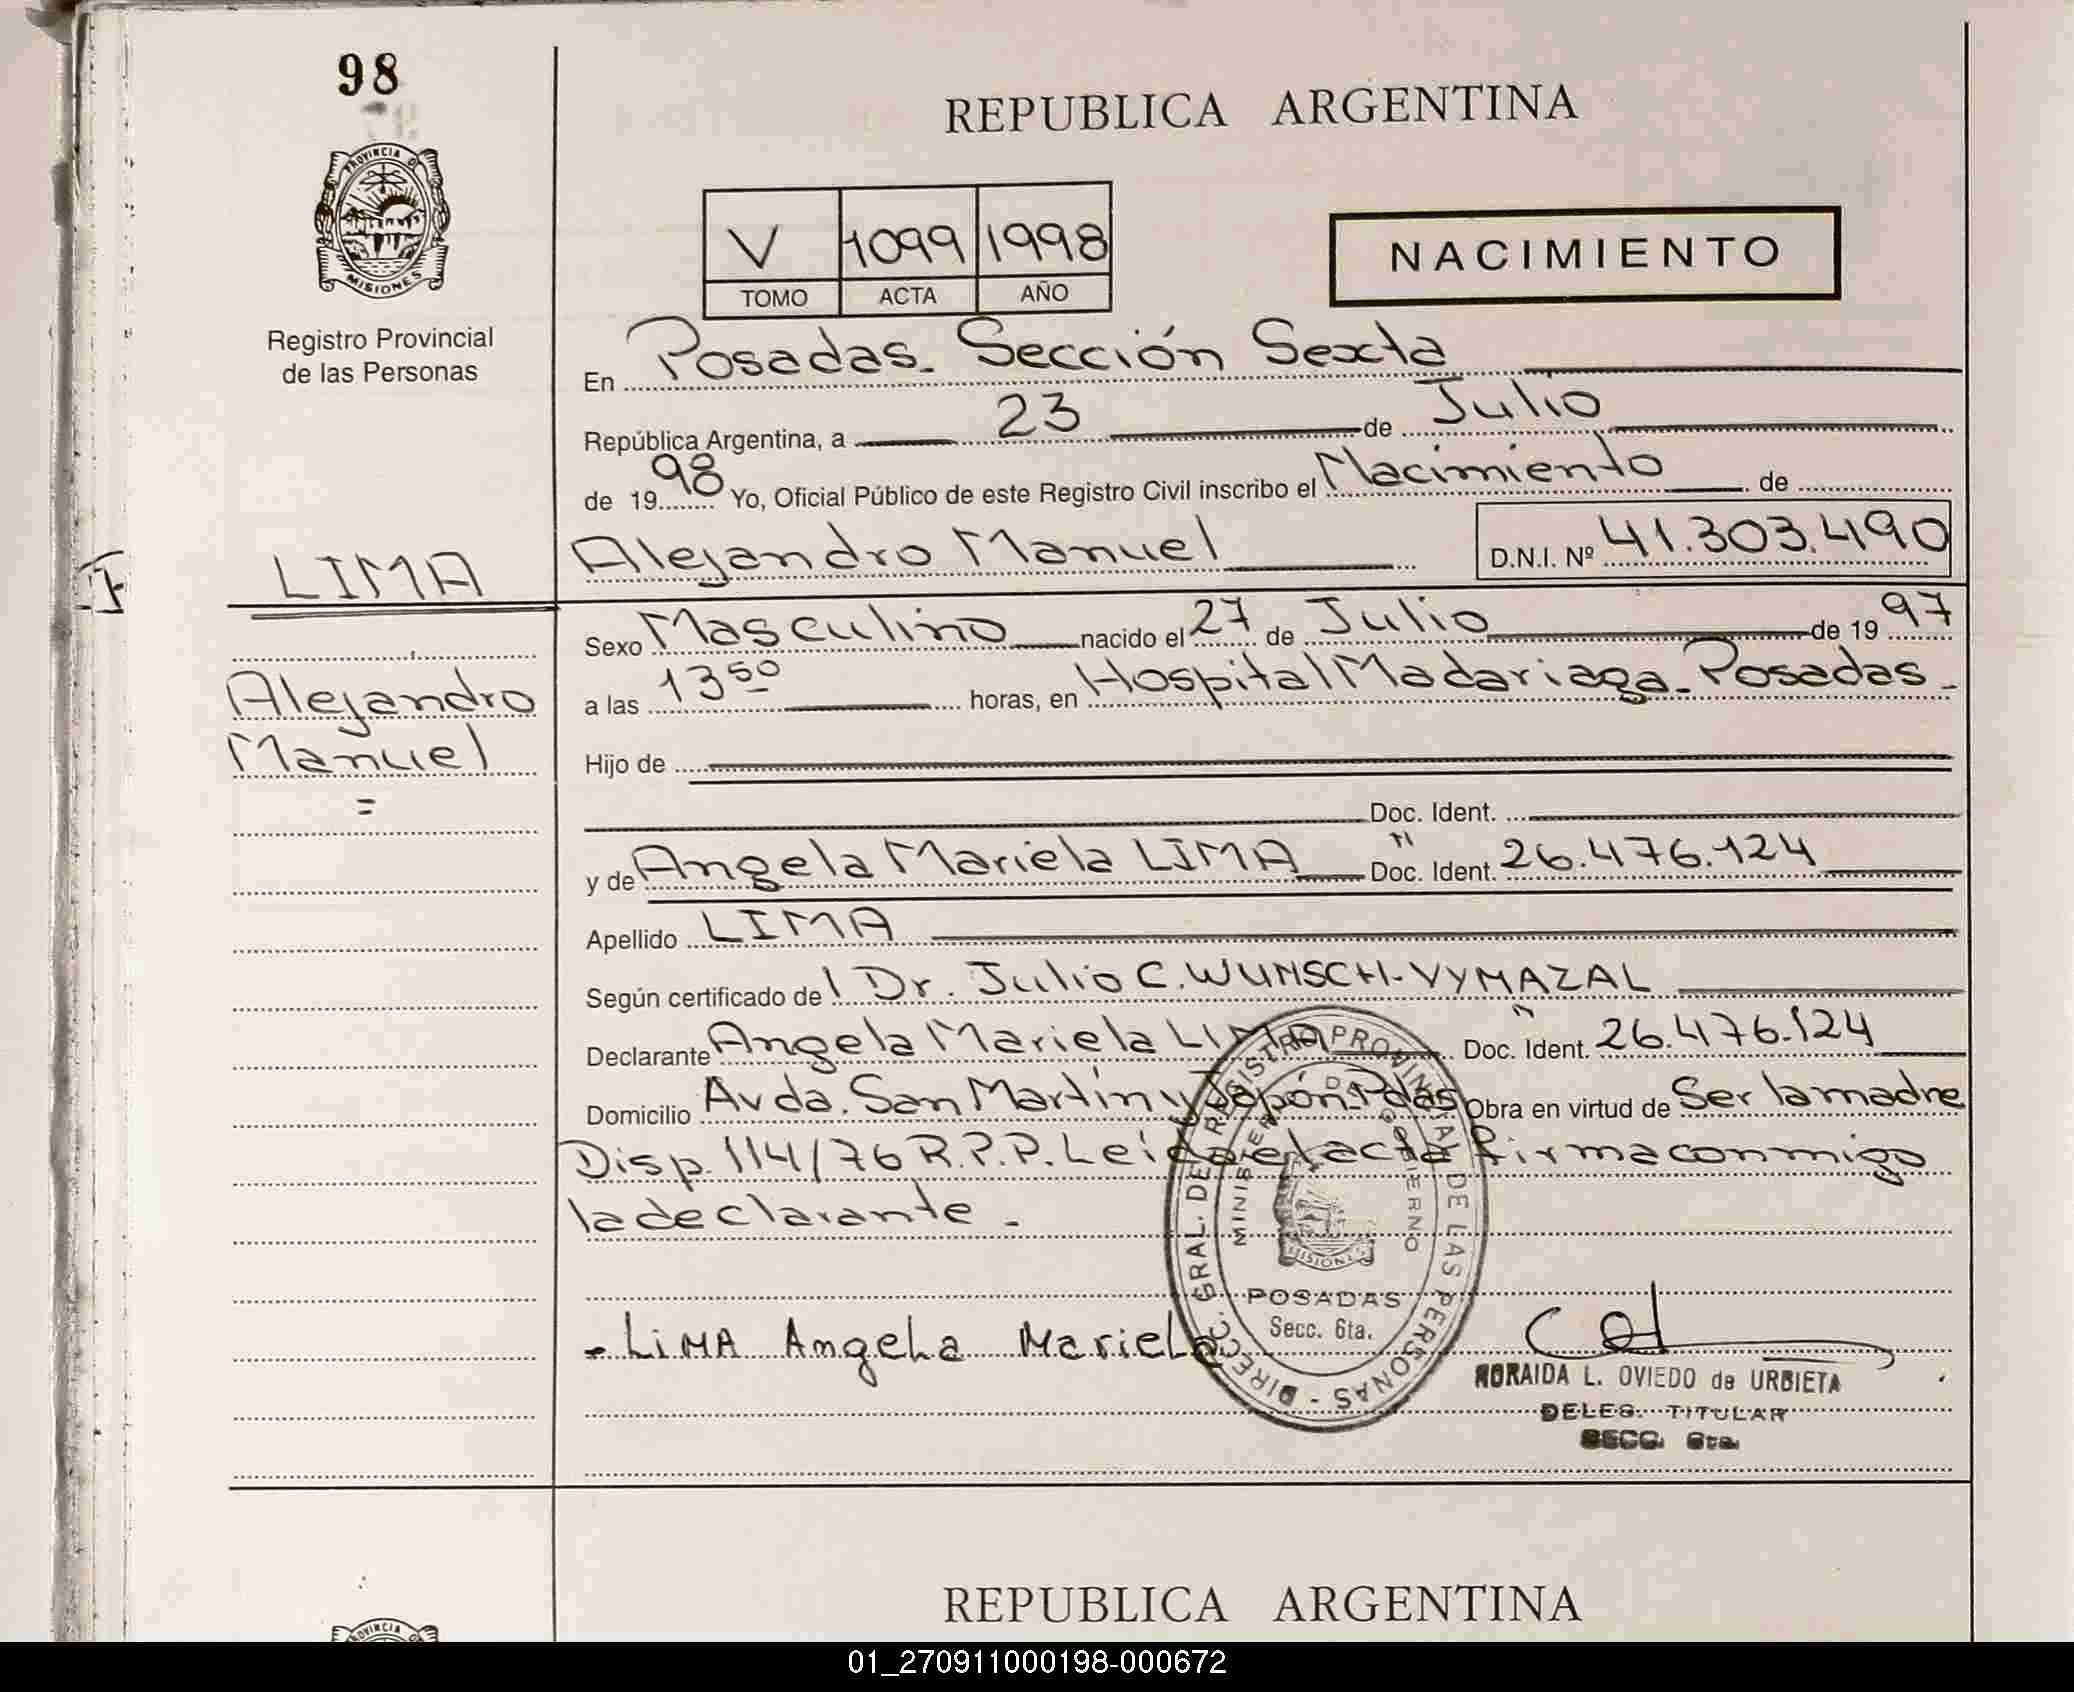 98
PROVINCIA D
MISIONES
Registro Provincial
de las Personas
REPUBLICA ARGENTINA
V 1099 1998
TOMO ACTA AÑO
NACIMIENTO
En Posadas. Sección Sexta
República Argentina, a 23 de Julio
de 1998 Yo, Oficial Público de este Registro Civil inscribo el Nacimiento de
LIMA Alejandro Manuel D.N.I. Nº 41.303.490
Sexo Masculino nacido el 27 de Julio de 1997
Alejandro
Manuel
a las 13 50 horas, en Hospital Madariaga - Posadas -
Hijo de
Doc. Ident.
y de Angela Mariela LIMA Doc. Ident. 26.476.124
Apellido LIMA
Según certificado del Dr. Julio C. WUNSCH-VYMAZAL
Declarante Angela Mariela LIMA Doc. Ident. 26.476.124
Domicilio Avda. San Martín y Japón - Pdas Obra en virtud de Ser la madre
Disp. 114/76 R.P.P. Leída el acta firma conmigo
la declarante -
DIRECC. GRAL. DE REGISTRO PROVINCIAL DE LAS PERSONAS -
MINISTERIO DE GOBIERNO
MISIONES
POSADAS
Secc. 6ta.
- LiMA Angela Mariela
NORAIDA L. OVIEDO de URBIETA
DELEG. TITULAR
SECC. 6ta.
REPUBLICA ARGENTINA
01_270911000198-000672